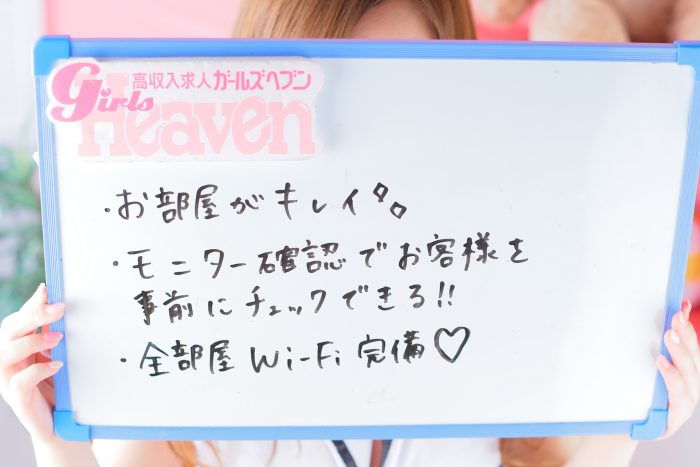 高収入求人ガールズヘブン
Girls
Heaven
・お部屋がキレイ
・モニター確認でお客様を
事前にチェックできる!!
・全部屋Wi-Fi完備♡